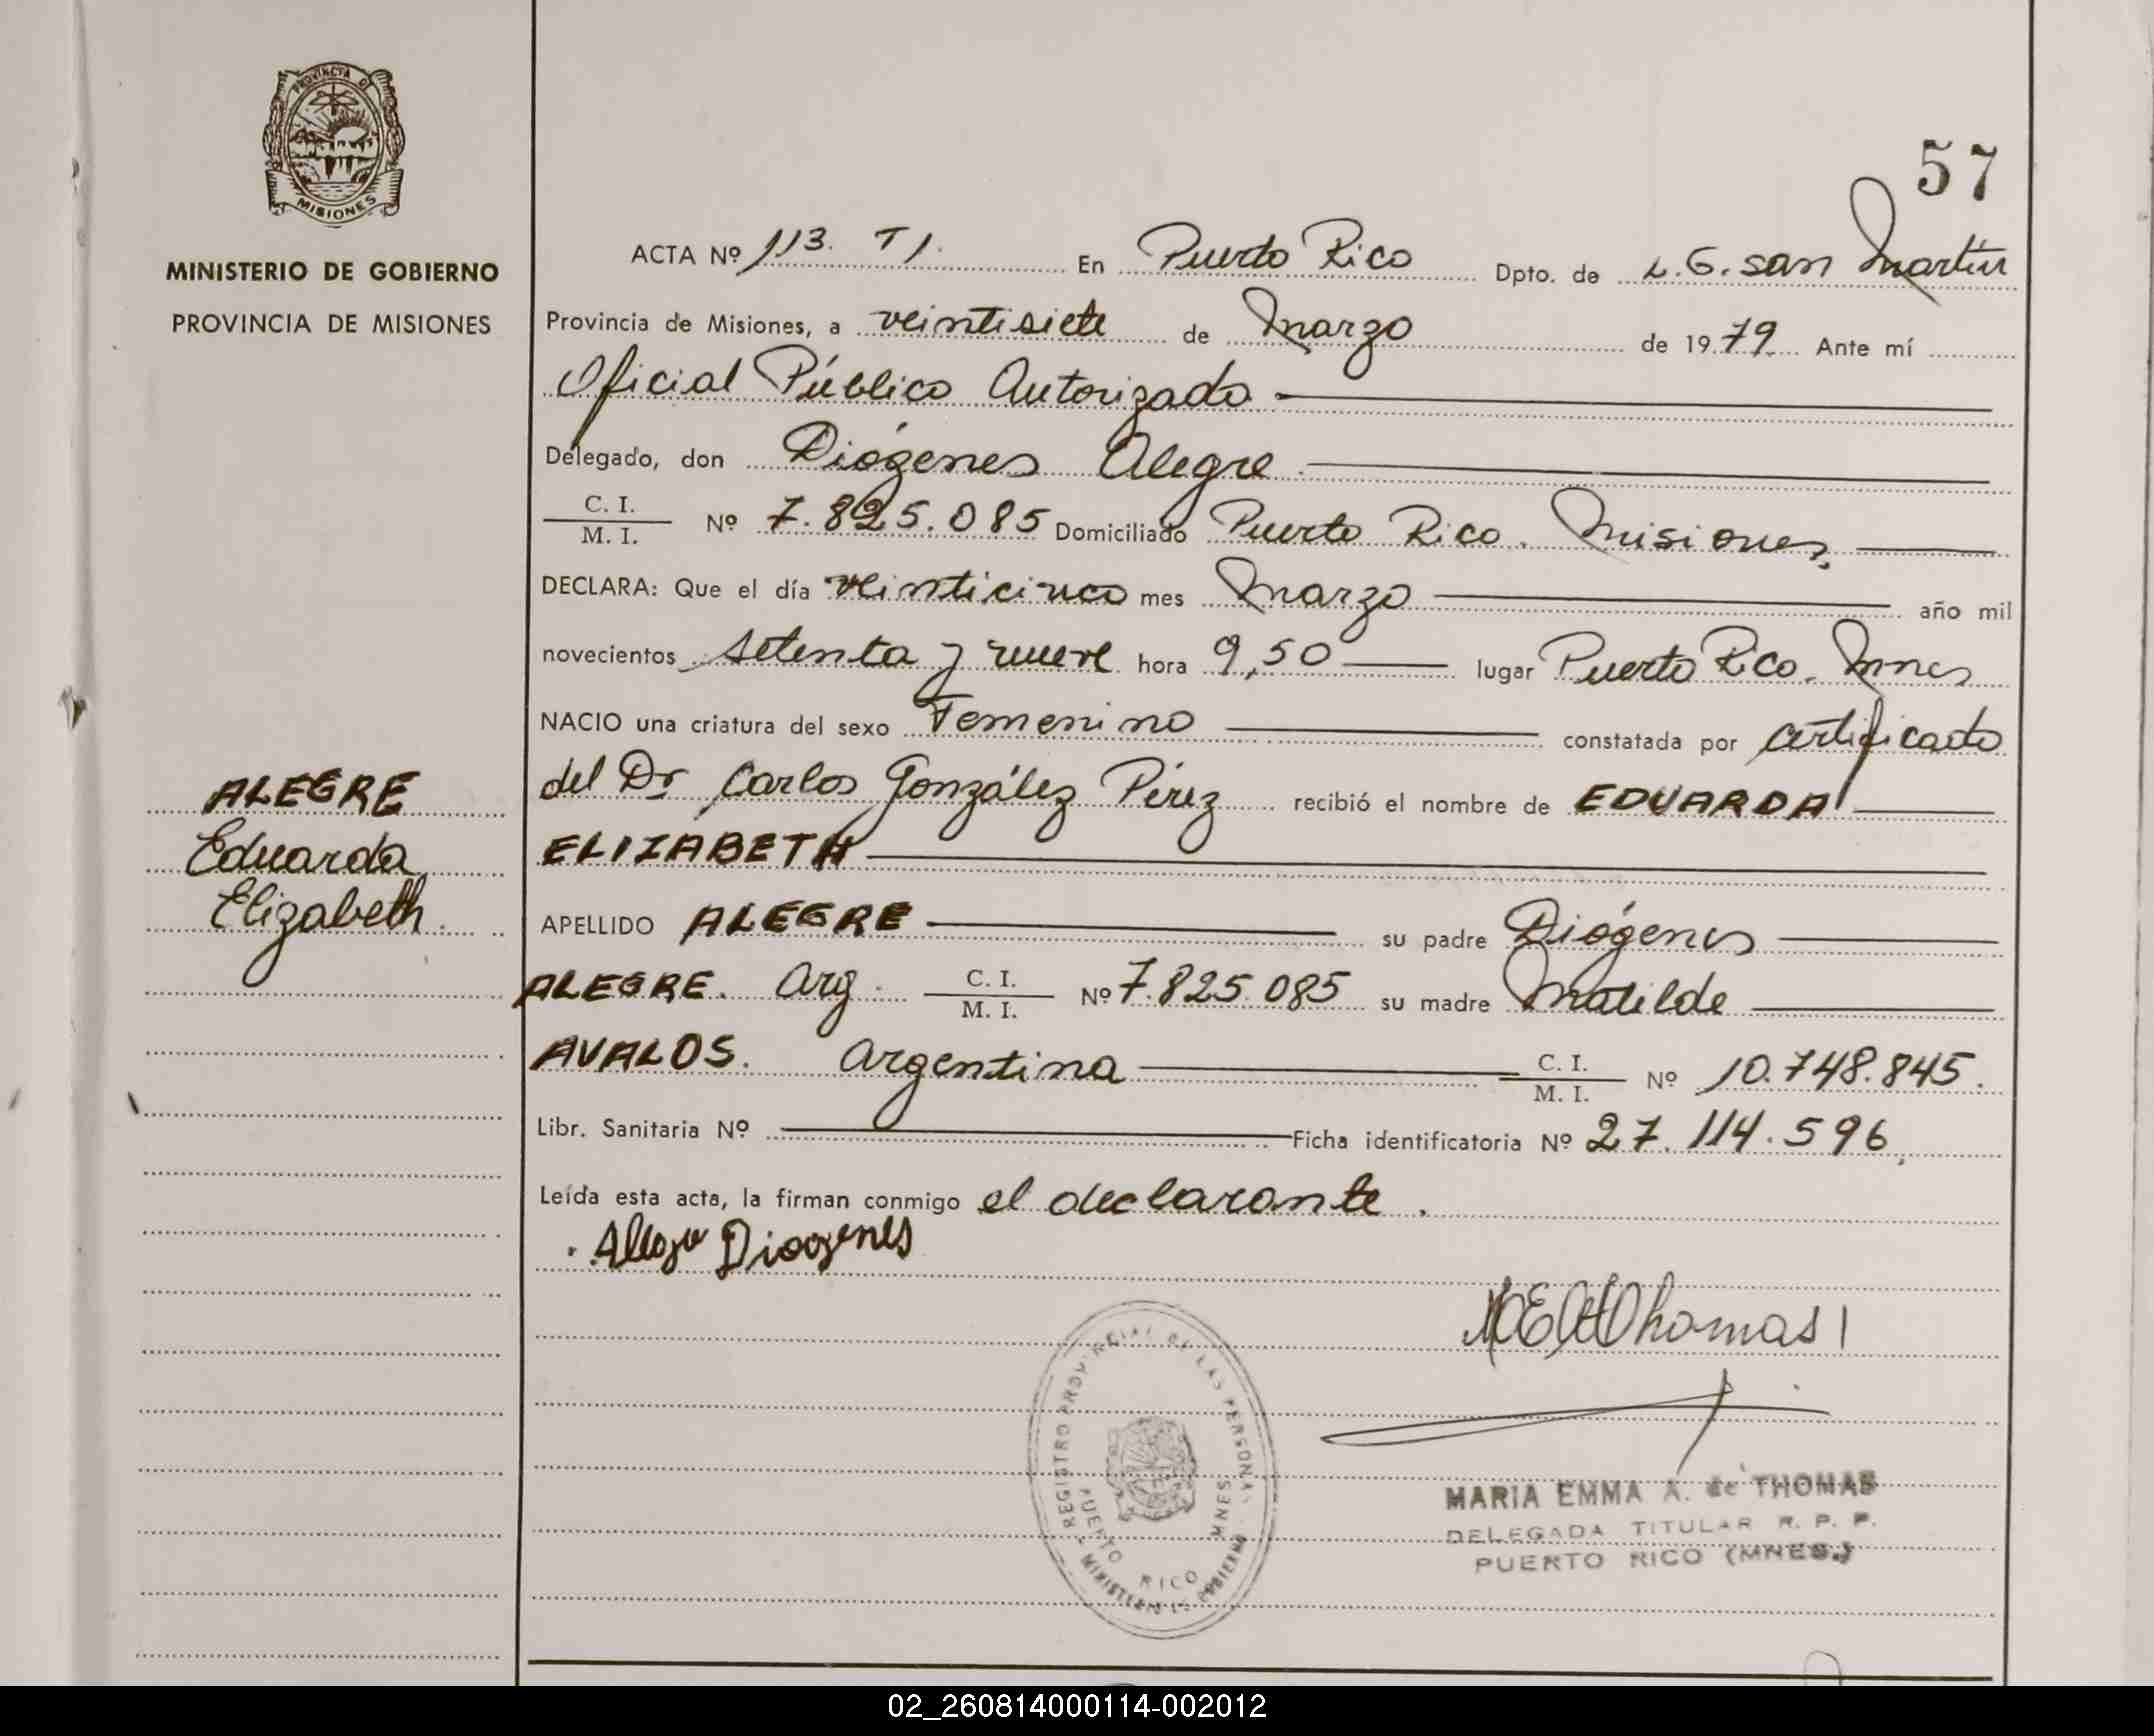 PROVINCIA DE
MISIONES
MINISTERIO DE GOBIERNO
PROVINCIA DE MISIONES
57
ACTA Nº 113. T1. En Puerto Rico Dpto. de L.G. San Martín
Provincia de Misiones, a veintisiete de Marzo de 1979. Ante mí
Oficial Público Autorizado
Delegado, don Diógenes Alegre
C. I.
M. I. Nº 7.825.085 Domiciliado Puerto Rico. Misiones.
DECLARA: Que el día veinticinco mes Marzo año mil
novecientos setenta y nueve hora 9,50 lugar Puerto Rico. Mnes
NACIO una criatura del sexo Femenino constatada por certificado
del Dr Carlos González Pérez recibió el nombre de EDUARDA
ELIZABETH
APELLIDO ALEGRE su padre Diógenes
ALEGRE. Arg. C. I. M. I. Nº 7.825.085 su madre Matilde
AVALOS. Argentina C. I. M. I. Nº 10.748.845.
Libr. Sanitaria Nº Ficha identificatoria Nº 27.114.596.
Leída esta acta, la firman conmigo el declarante.
ALEGRE
Eduarda
Elizabeth.
Diogenes
Thomas
REGISTRO PROVINCIAL DE LAS PERSONAS
PUERTO RICO MNES
MINISTERIO DE GOBIERNO
MARIA EMMA A. de THOMAS
DELEGADA TITULAR R. P. P.
PUERTO RICO (MNES.)
02_260814000114-002012